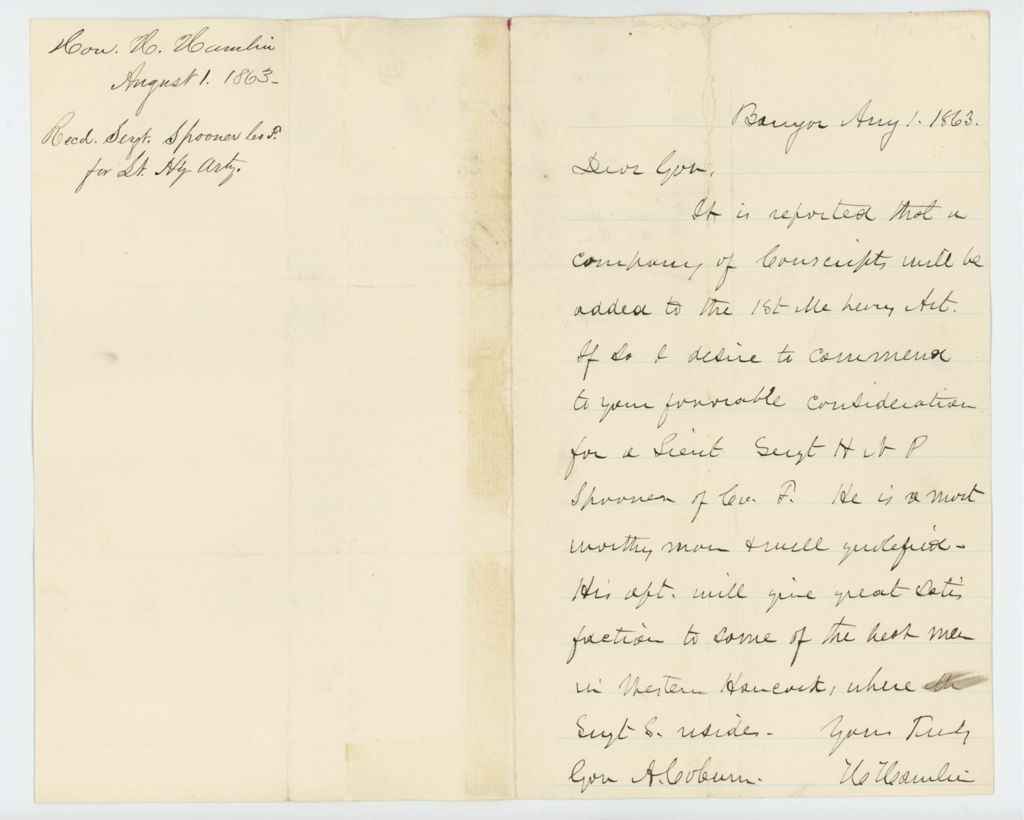 Hon. H. Hamlin
August 1. 1863-
Recd. Sergt. Spooner Co F.
for Lt. Hy Arty.
Bangor Aug 1. 1863.
Dear Gov,
It is reported that a
company of Conscripts will be
added to the 1st Me heavy Art.
If so I desire to commend
to your favorable consideration
for a Lieut Sergt H P
Spooner of Co. F. He is a most
worthy man & well qualified -
His apt. will give great satis
faction to some of the best men
in Western Hancock, where
Sergt S. resides - Yours Truly
Gov A. Coburn. H Hamlin